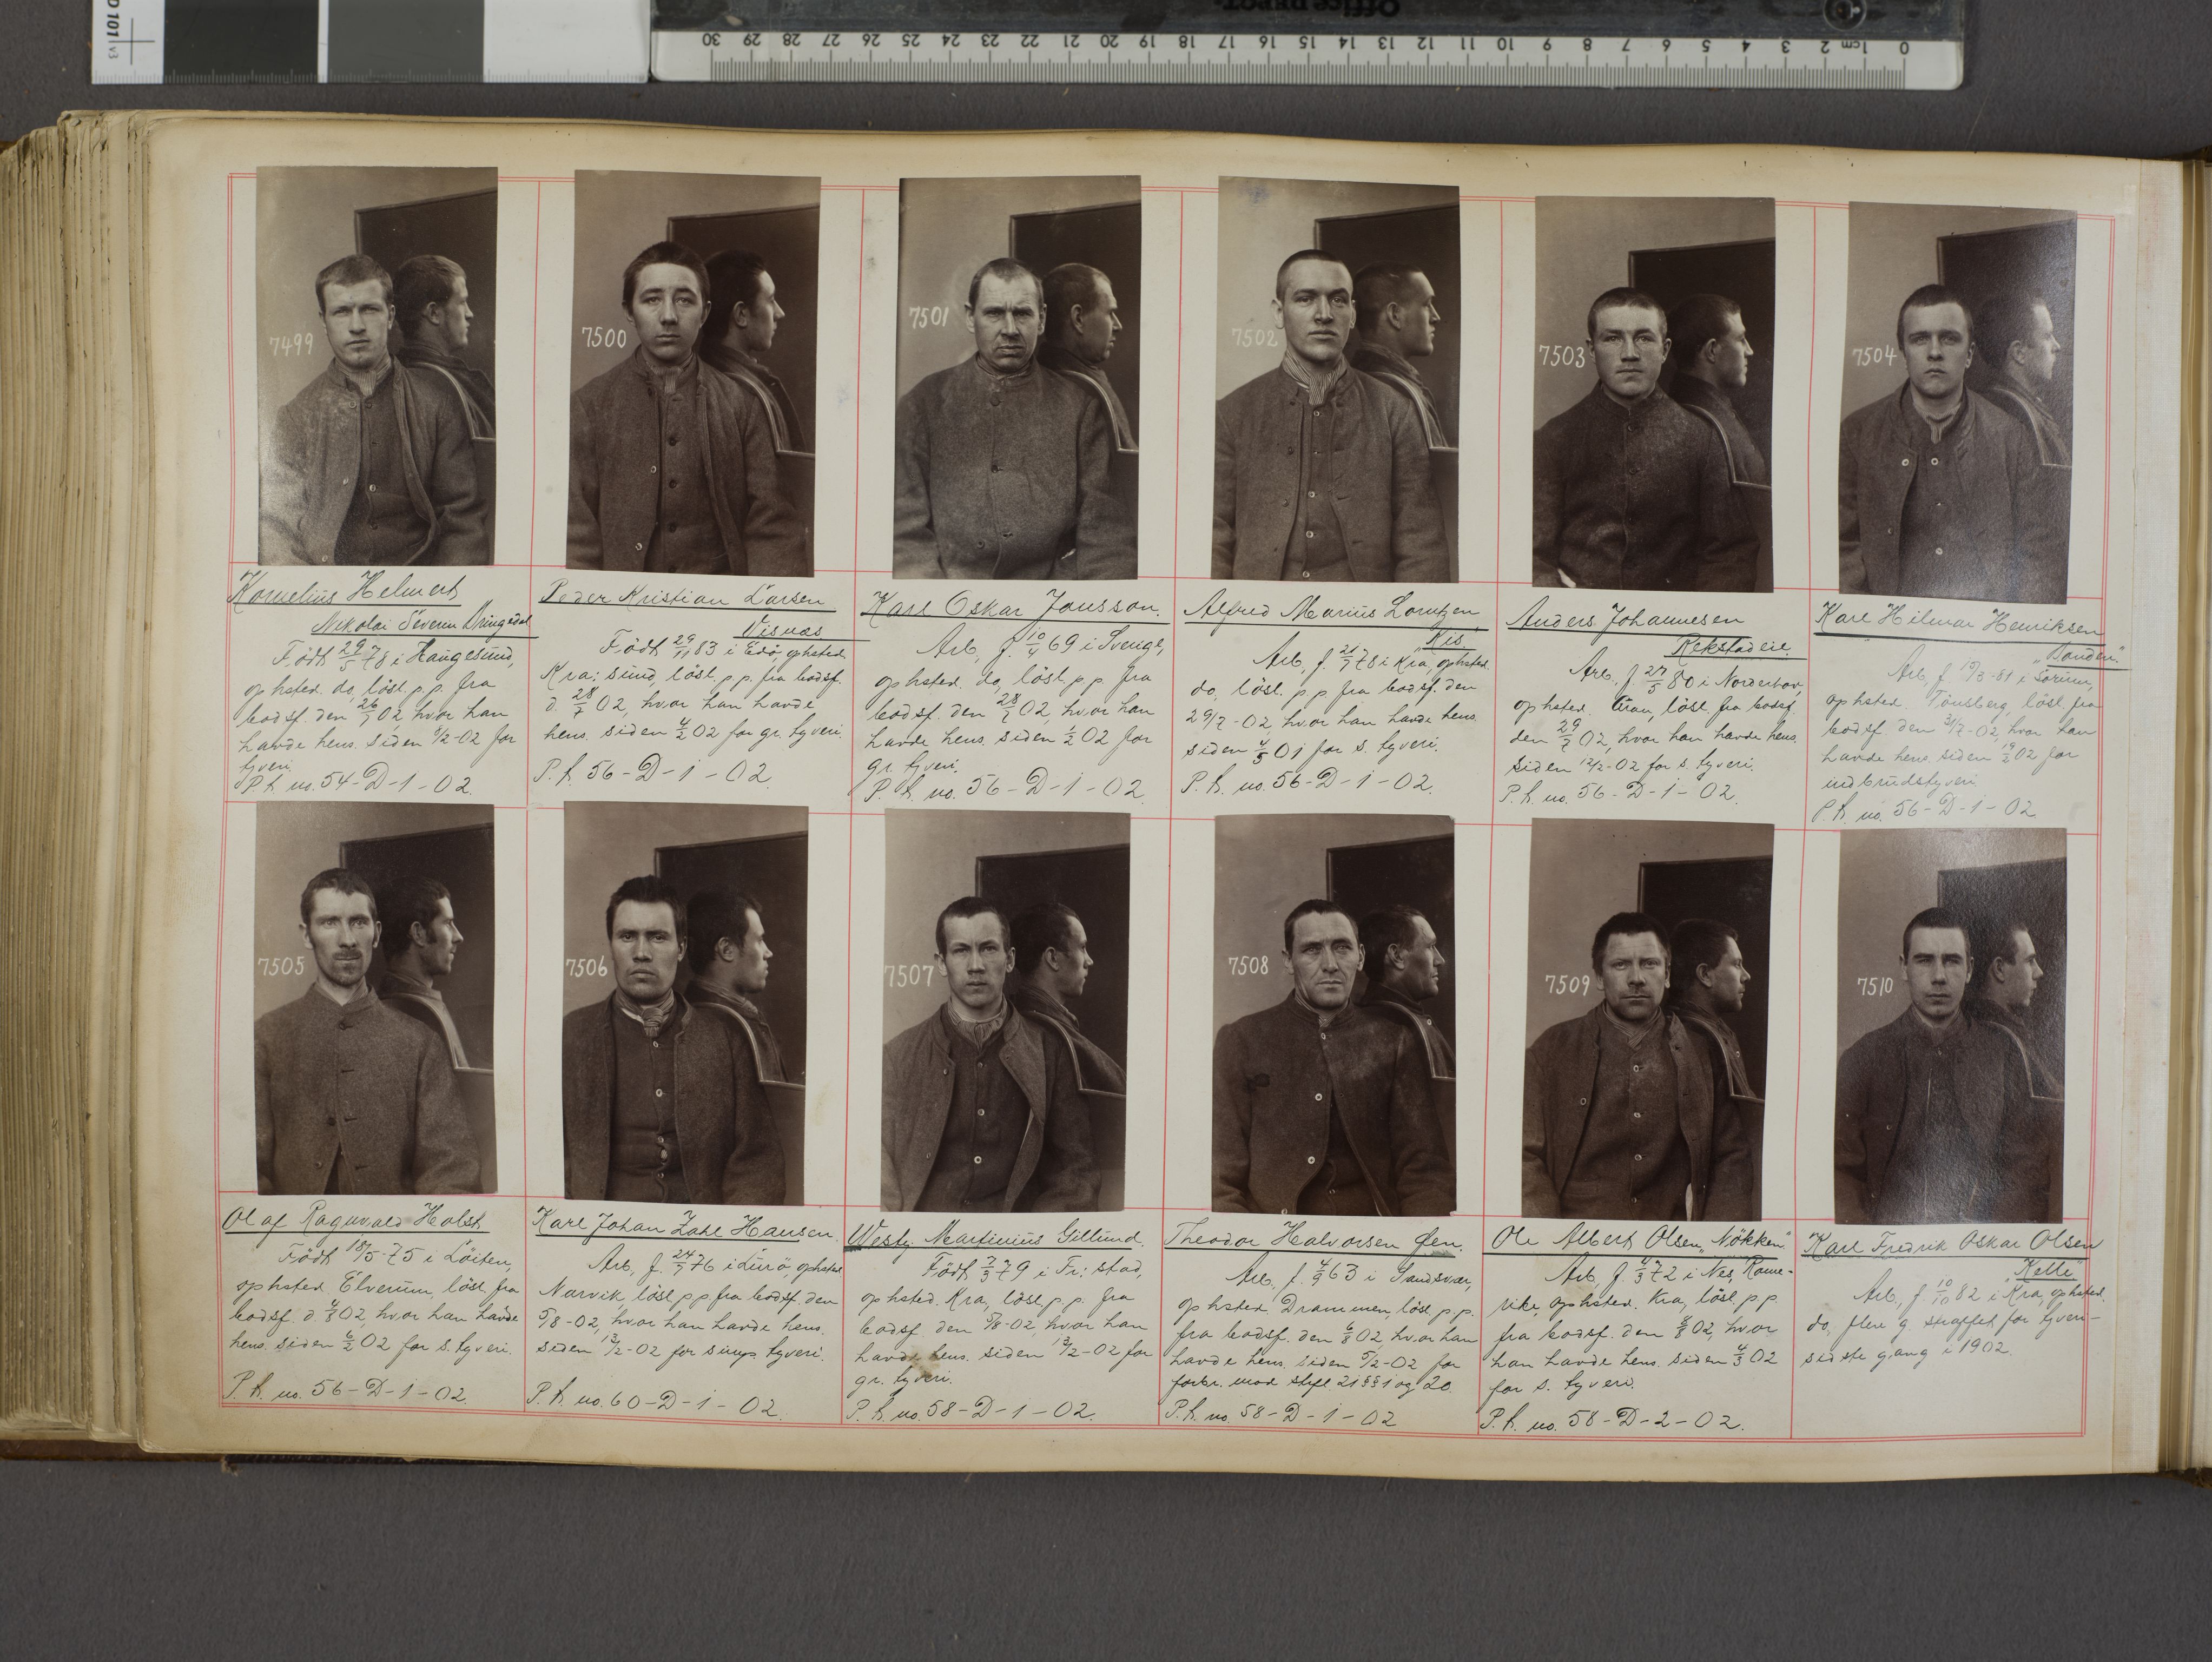 D 101 v3
Office DEPOT.
30 29 28 27 26 25 24 23 22 21 20 19 18 17 16 15 14 13 12 11 10 9 8 7 6 5 4 3 2 1cm 0
7499
7500
7501
7502
7503
7504
Kornelius Helmert
Nikolai Severin Dringedal
Født 29/5 78 i Haugesund,
ophsted. do, løsl. p.p. fra
bodsf. den 26/7 02, hvor han
havde hens. siden 8/2-02 for
tyveri.
P.k. no. 54-D-1-02.
Peder Kristian Larsen
Visnæs
Født 29/11 83 i Edø, ophsted.
Kra: sund, løsl. p.p. fra bodsf.
d. 28/7 02, hvor han havde
hens. siden 4/2 02 for gr. tyveri.
P.k. 56-D-1-02.
Karl Oskar Jonsson.
Arb, f. 10/4 69 i Sverige,
ophsted. do, løsl. p.p. fra
bodsf. den 28/7 02, hvor han
havde hens. siden 1/2 02 for
gr. tyveri.
P.k. no. 56-D-1-02.
Alfred Marius Lorntzen
"Kis.
Arb, f. 21/7 78 i Kra, ophsted.
do, løsl. p.p. fra bodsf. den
29/7-02, hvor han havde hens.
siden 4/5 01 for s. tyveri.
P.k. no. 56-D-1-02.
Anders Johannesen
Rekstadeie.
Arb, f. 27/5 80 i Norderhov,
ophsted. Gran, løsl. fra bodsf.
den 29/7 02, hvor han havde hens.
siden 12/2-02 for s. tyveri.
P.k. no. 56-D-1-02.
Karl Hilmar Henriksen
"Bonden"
Arb, f. 19/3-81 i Sørum,
ophsted. Tønsberg, løsl. fra
bodsf. den 31/7-02, hvor han
havde hens. siden 19/2 02 for
indbrudstyveri.
P.k. no. 56-D-1-02.
7505
7506
7507
7508
7509
7510
Olaf Ragnvald Holst
Født 18/5-75 i Løiten,
ophsted. Elverum, løsl. fra
bodsf. d. 4/8 02, hvor han havde
hens. siden 6/2 02 for s. tyveri.
P.k. no. 56-D-1-02.
Karl Johan Zahl Hansen.
Arb, f. 24/7 76 i Lurø, ophsted.
Narvik, løsl. p.p. fra bodsf. den
5/8-02, hvor han havde hens.
siden 13/2-02 for simp. tyveri.
P.k. no. 60-D-1-02.
Westy Martinius Gillund.
Født 7/3 79 i Fr: stad,
ophsted. Kra, løsl. p.p. fra
bodsf. den 5/8-02, hvor han
havde hens. siden 13/2-02 for
gr. tyveri.
P.k. no. 58-D-1-02.
Theodor Halvorsen Øen.
Arb, f. 4/9 63 i Sandsvær,
ophsted. Drammen, løsl. p.p.
fra bodsf. den 6/8 02, hvor han
havde hens. siden 5/2-02 for
forbr. mod stfl. 21 §§ 1 og 20.
P.k. no. 58-D-1-02
Ole Albert Olsen "Nøkken".
Arb, f. 4/3 72 i Nes, Rome-
rike, ophsted. Kra, løsl. p.p.
fra bodsf. den 8/8 02, hvor
han havde hens. siden 4/3 02
for s. tyveri.
P.k. no. 58-D-2-02.
Karl Fredrik Oskar Olsen
"Kelle"
Arb, f. 10/10 82 i Kra, ophsted.
do, flere g. straffet for tyveri-
sidste gang i 1902.